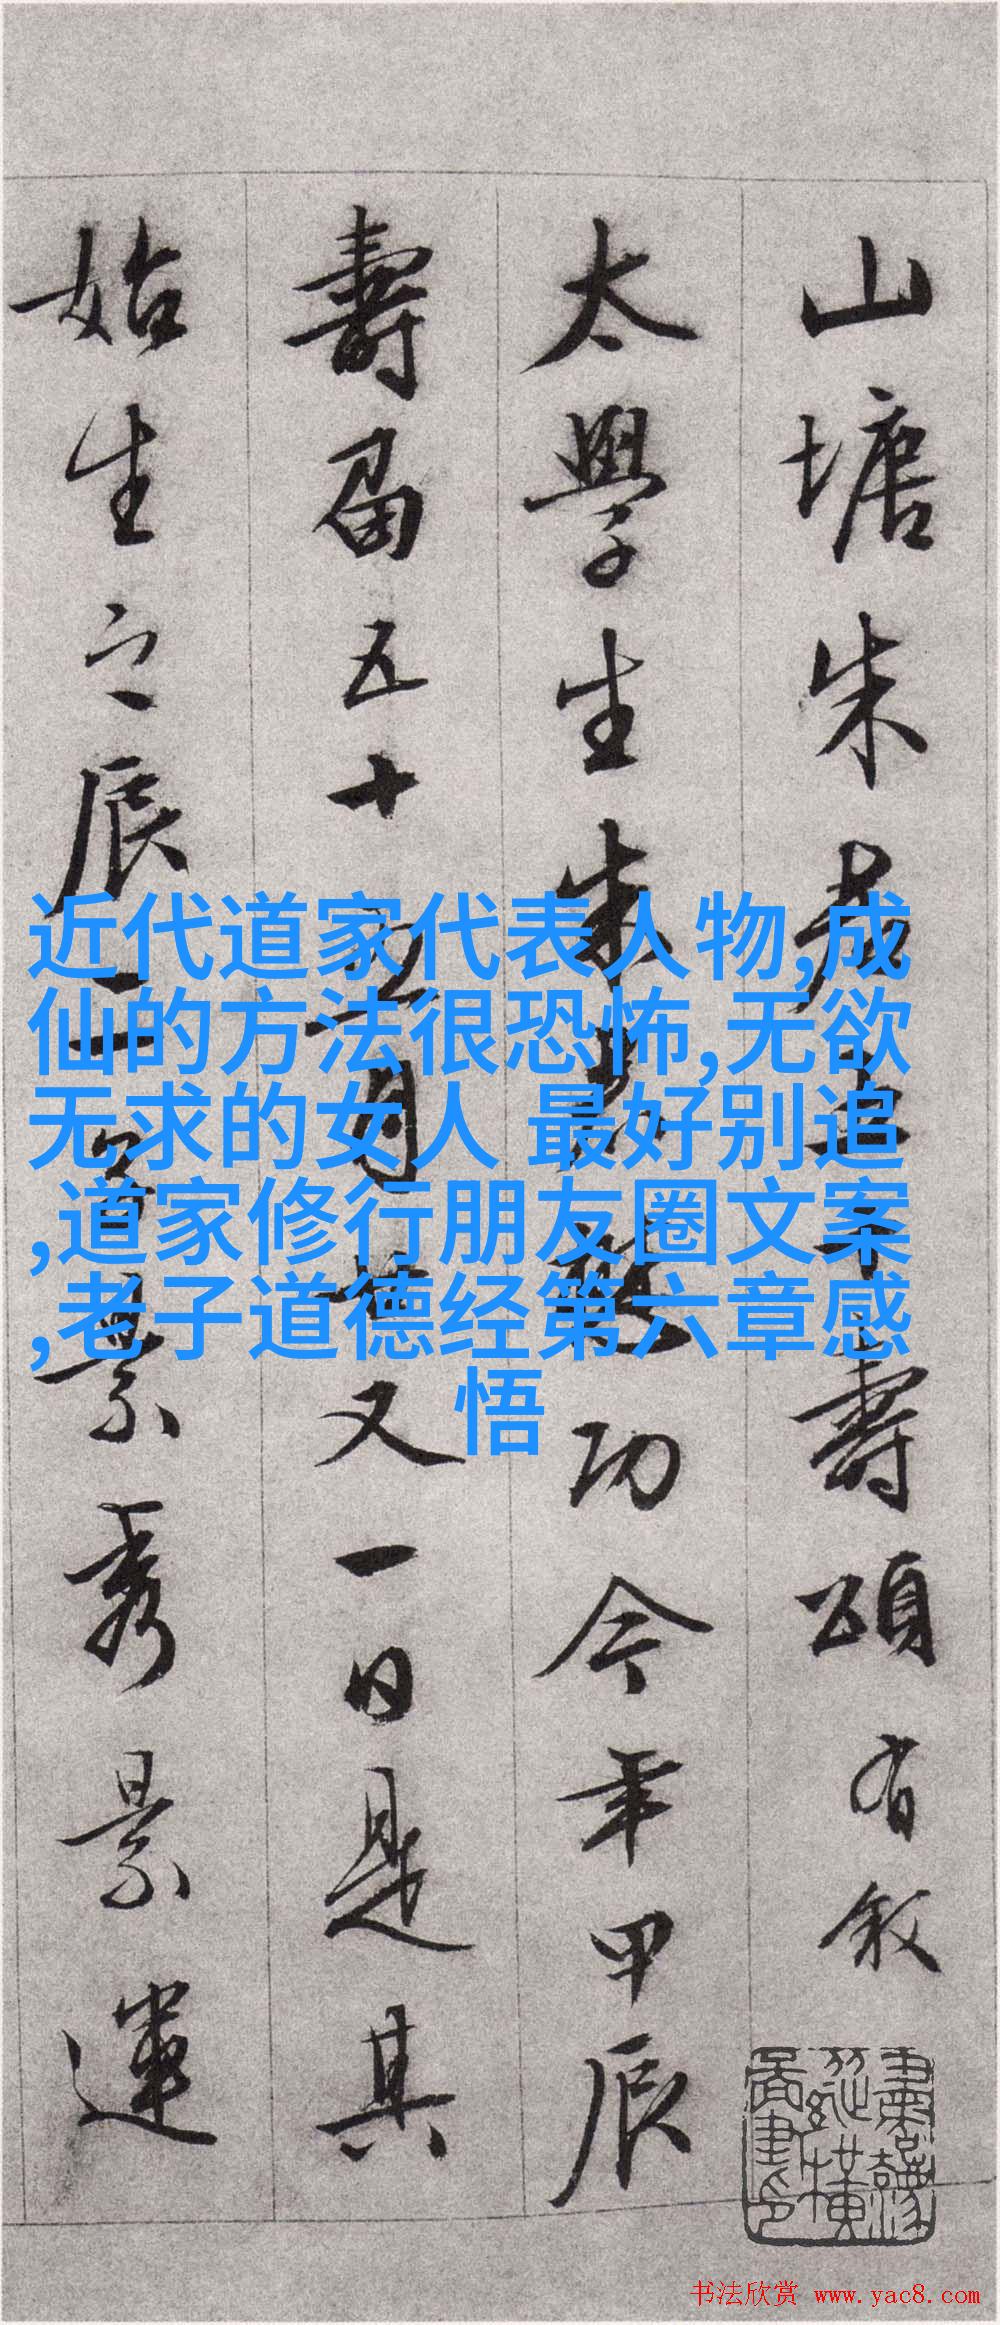 山塘朱君五十壽頌有叙
太學生朱君功今年甲辰
壽届五十月又一日是其
始生之辰景秀景運
近代道家代表人物,成
仙的方法很恐怖,无欲
无求的女人 最好别追
,道家修行朋友圈文案
,老子道德经第六章感
悟
书法欣赏 www.yac8.com